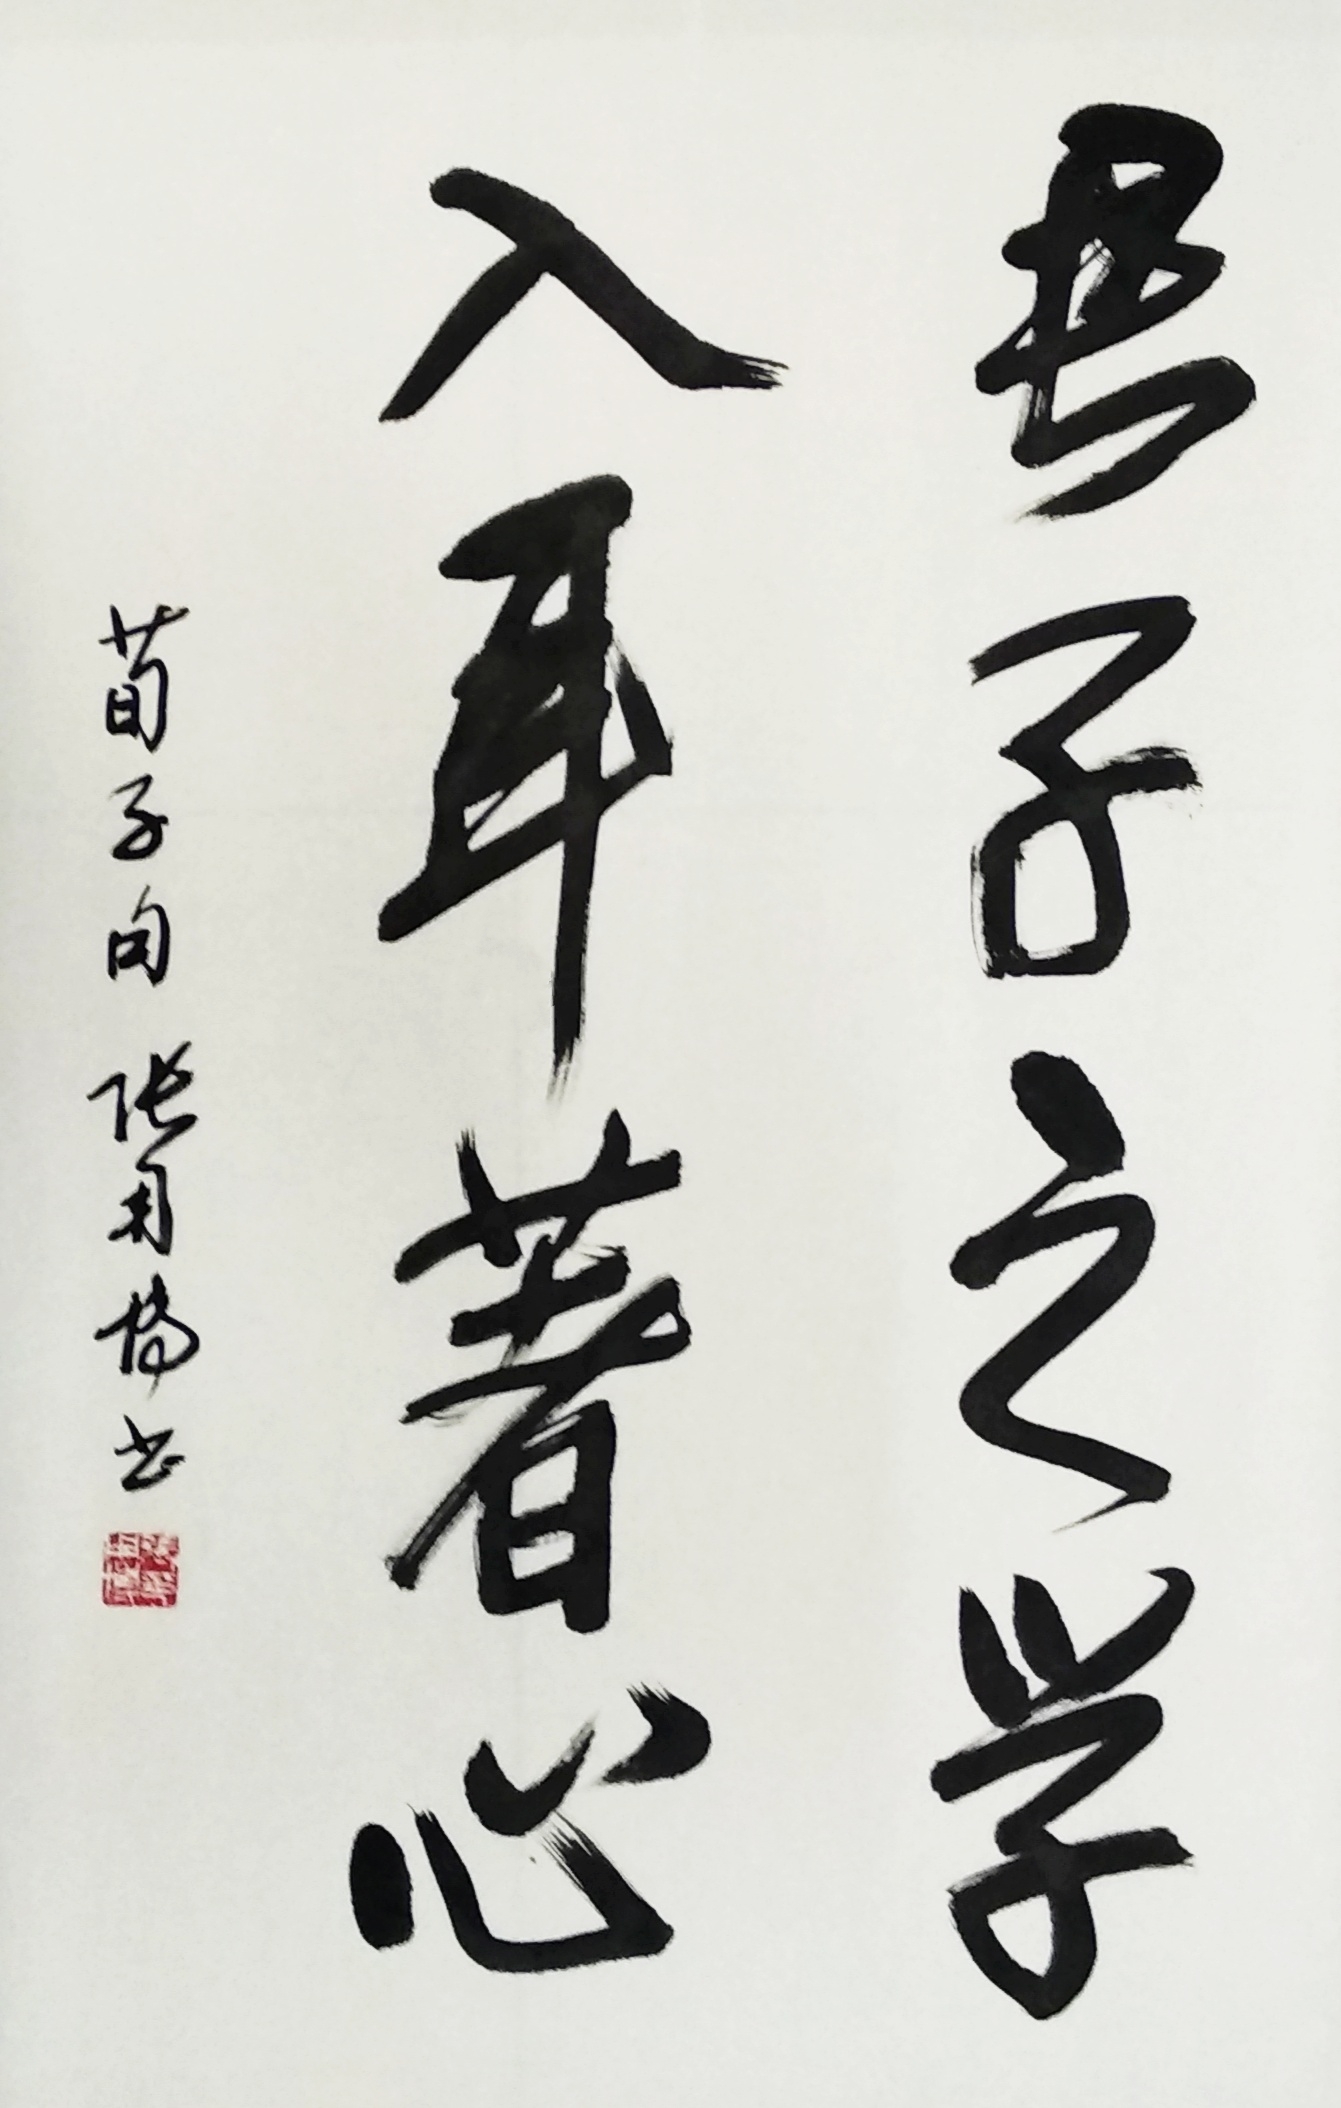 君子之学
入耳著心
荀子句 张用梅书